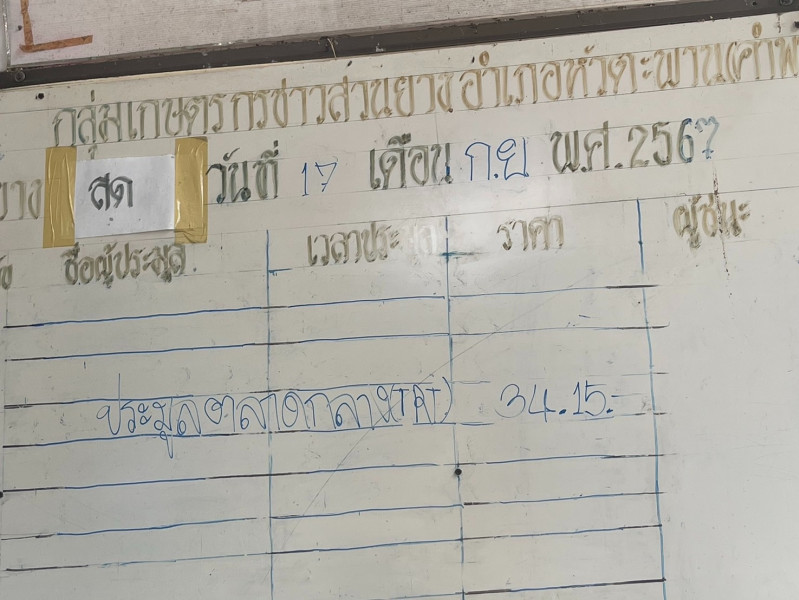 กลุ่มเกษตรกรชาวสวนยางอำเภอหัวตะพาน(คำพ
ยาง สด วันที่ 17 เดือน ก.ย พ.ศ.2567
ชื่อผู้ประมูล เวลาประมูล ราคา ผู้ชนะ
ประมูลตาลาดกลาง(TRT) 34.15.-